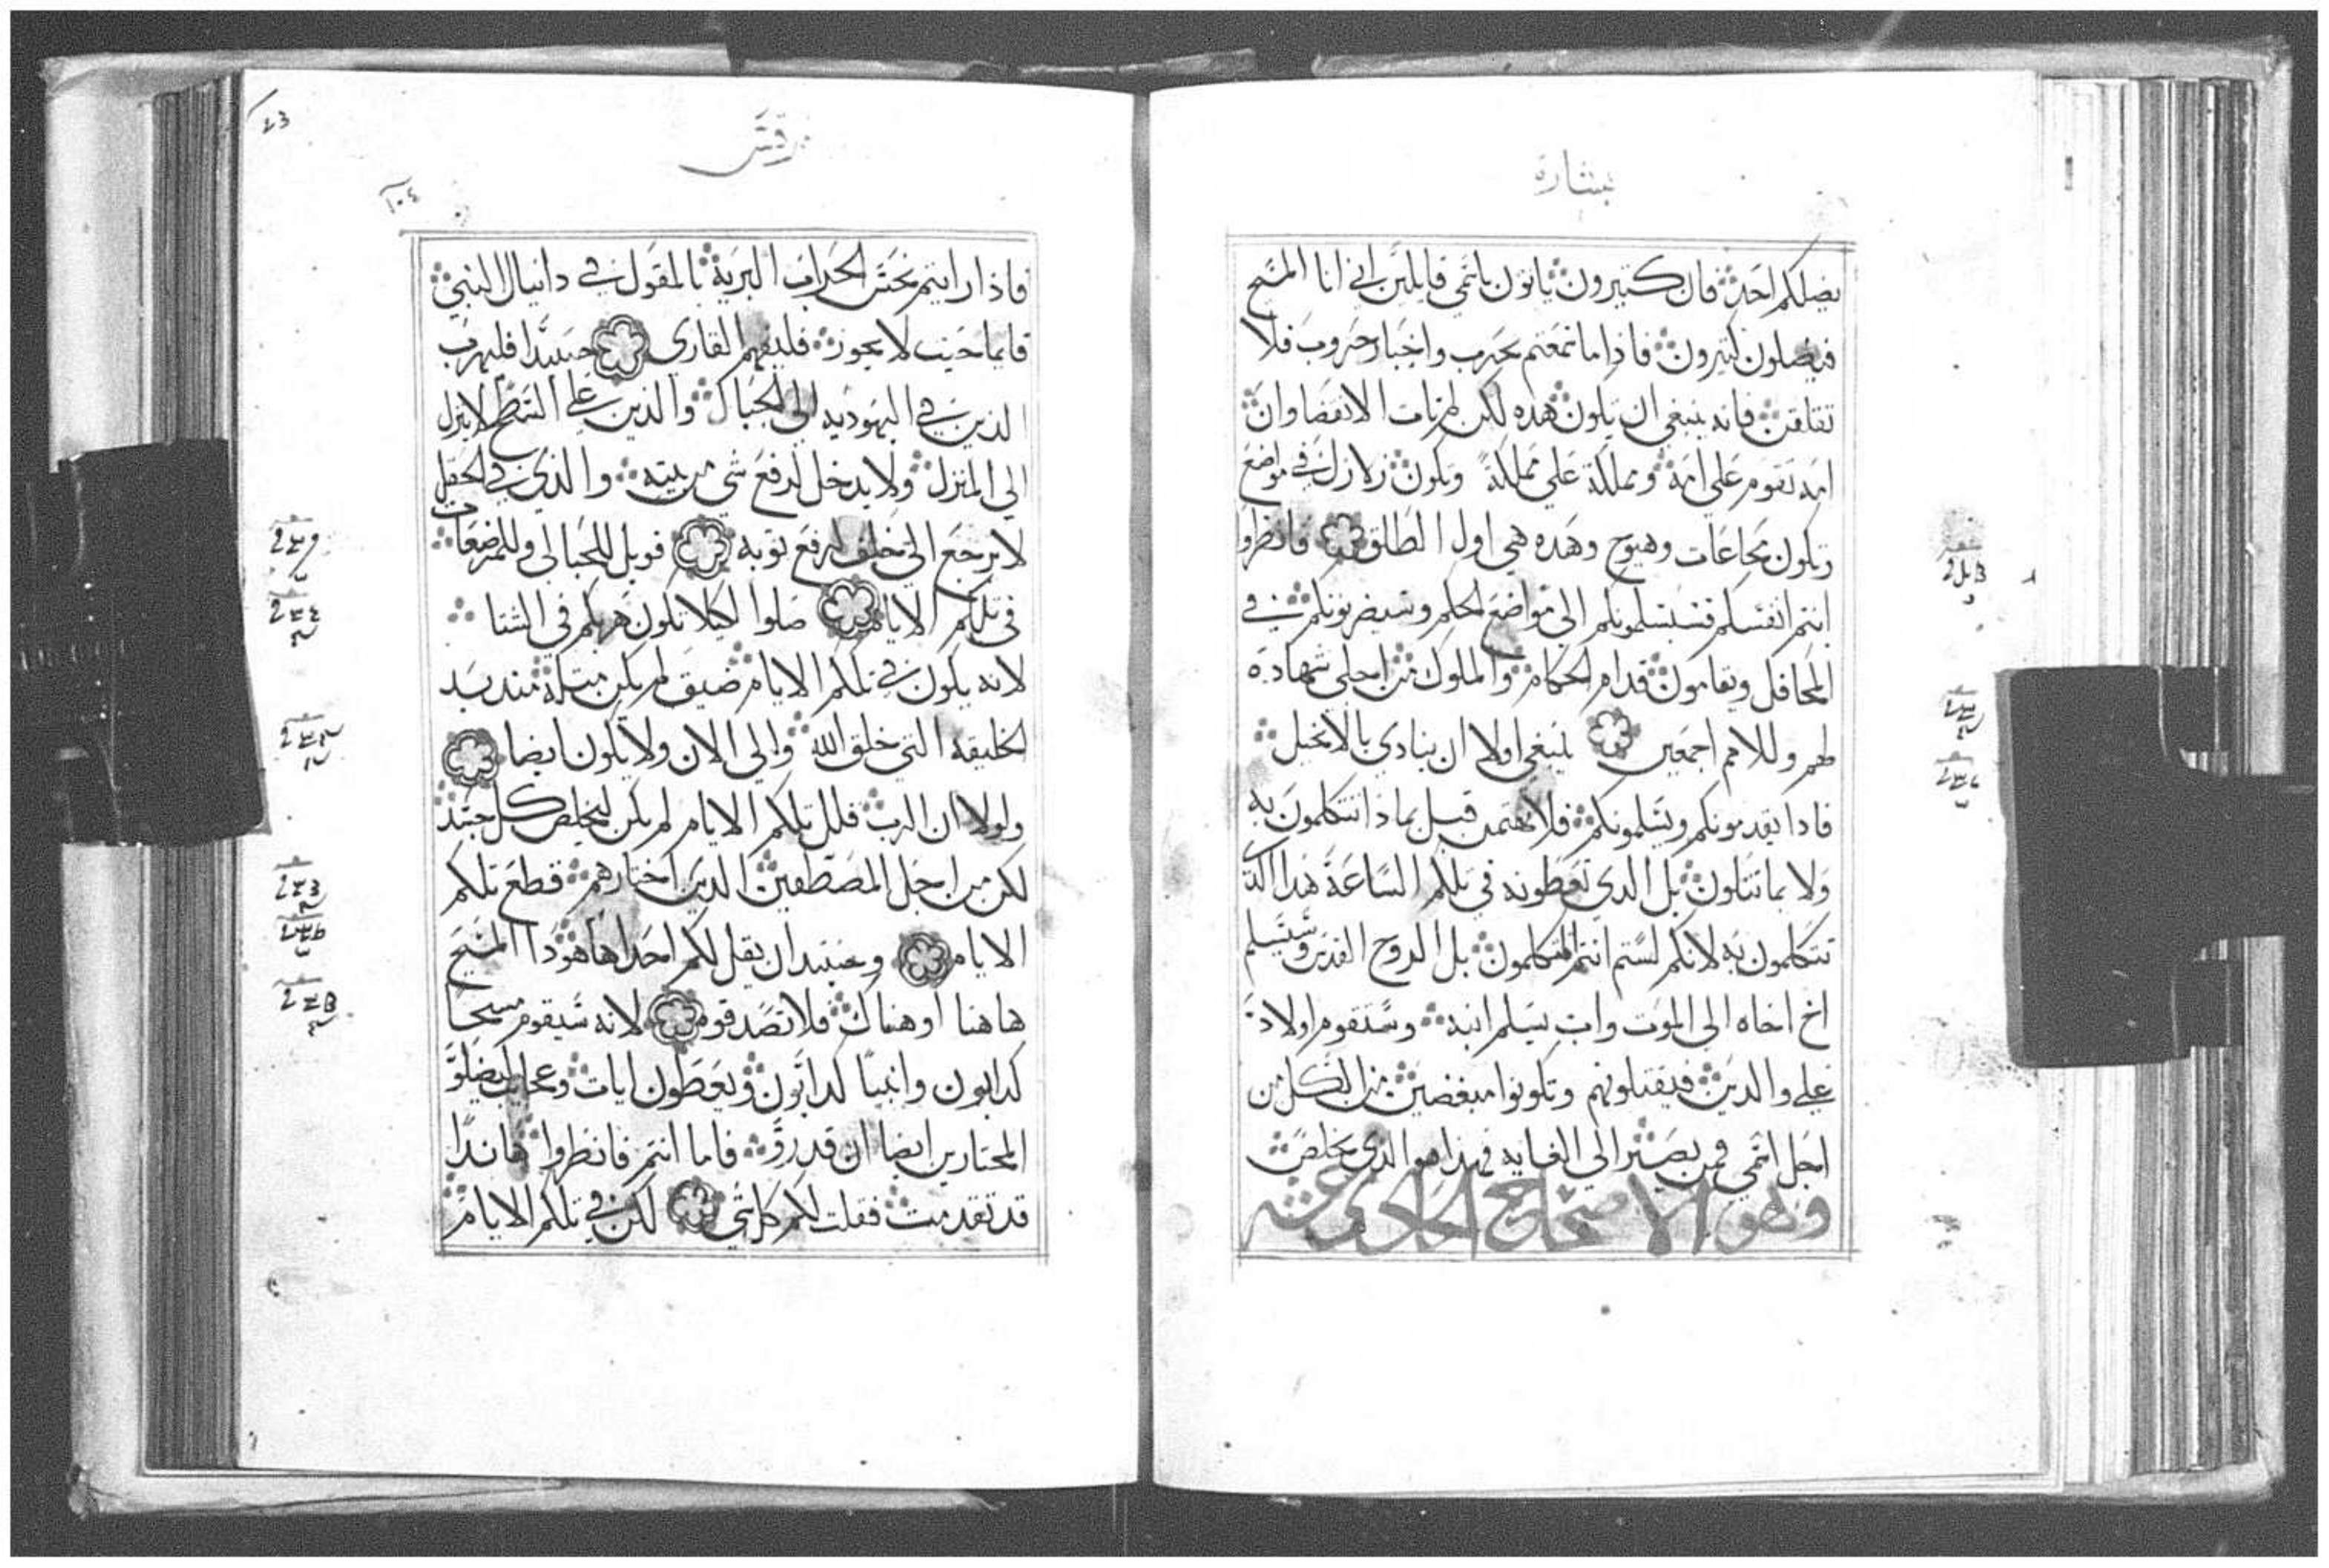 بشارة
يضلكم احد فان كتيرون ياتون باسمي قايلين اني انا المسيح
فيضلون كتيرون فاذا ما سمعتم بحرب واخبار حروب فلا
تقلقن فانه ينبغي ان تكون هده لكن لم يات الانقضا وان
امه تقوم على امة ومملكة على مملكة وتكون زلازل في مواضع
وتكون مجاعات وهيوج وهده هي اول الطلق فانظروا
انتم انفسكم فسيسلمونكم الى مواضع الحكم وسيضربونكم في
المحافل وتقامون قدام الحكام والملوك من اجلي شهادة
لهم وللامم اجمعين ينبغي اولا ان ينادي بالانجيل
فادا يقدمونكم ويسلمونكم فلا تهتمن قبل بما ذا تتكلمون به
ولا بما تتلون بل الدي تعطونه في تلكم الساعة هدا الد
تتكلمون به لانكم لستم انتم المتكلمون بل الروح القدس وسيسلم
اخ اخاه الى الموت واب يسلم ابنه وستقوم اولاد
على والدين فيقتلونهم وتكونوا مبغضين من الكل من
اجل اسمي فمن يصبر الى الغايه فهذا هو الذي يخلص
وهو الاصحاح الحادي عشر
مرقس
١٠٤
فاذا رايتم نجس الخراب البرية المقول في دانيال النبي
قايما حيث لا يجوز فليفهم القاري حينيدا فليهرب
الذين في اليهوديه الى الجبال والذين على السطح لا ينزل
الى المنزل ولا يدخل لرفع شي من بيته والذي في الحقل
لا يرجع الى خلف لرفع توبه فويل للحبالى وللمرضعات
في تلكم الايام صلوا لكيلا تكون هربكم في الشتا
لانه يكون في تلكم الايام ضيق لم يكن متله مند بد
الخليقه التي خلق الله والى الان ولا يكون ايضا
ولولا ان الرب قلل تلكم الايام لم يكن ليخلص كل جسد
لكن من اجل المصطفين الدين اختارهم قطع تلكم
الايام وحينيد ان يقل لكم احد ها هودا المسيح
هاهنا او هناك فلا تصدقوه لانه سيقوم مسحا
كدابون وانبيا كدابون ويعطون ايات وعجايب ليضلوا
المختارين ايضا ان قدروا فاما انتم فانظروا هاندا
قد تقدمت فقلت لكم كل شي لكن في تلكم الايام